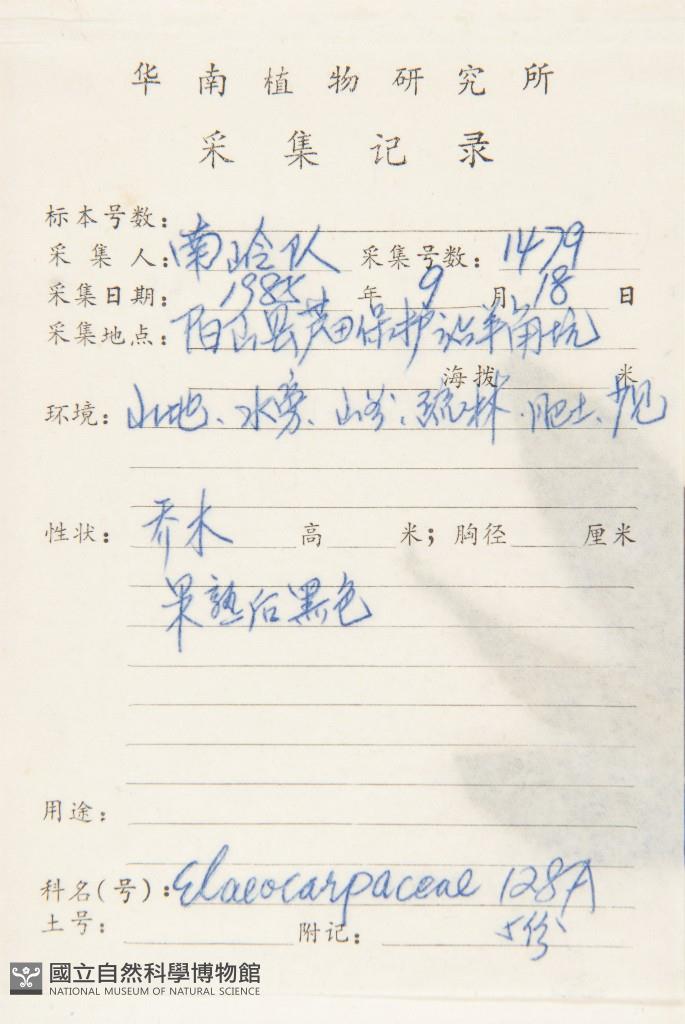 华南植物研究所
采集记录
标本号数：
采集人：南岭队 采集号数：1479
采集日期：1985年9月18日
采集地点：阳山县芦田保护站羊角坑
海拨 米
环境：山地、水旁、山谷、疏林、肥土、罕见
性状：乔木 高 米；胸径 厘米
果熟后黑色
用途：
科名(号)：Elaeocarpaceae 128A
土号： 附记： 5份
國立自然科學博物館
NATIONAL MUSEUM OF NATURAL SCIENCE